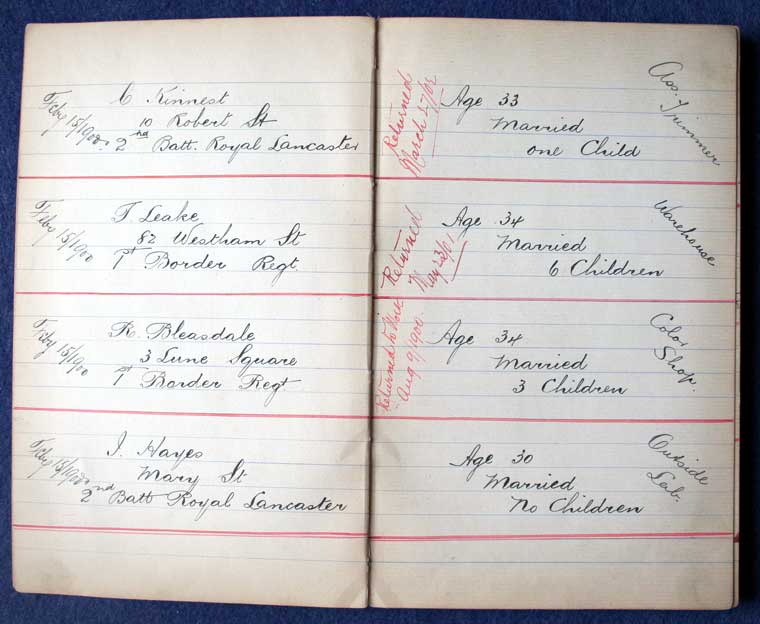 Feby 15/1900.
C Kinnest
10 Robert St
2nd Batt. Royal Lancaster
Returned
March 27/02
Age 33
Married
one Child
Trimmer
Feby 15/1900
T Leake
82 Westham St
1st Border Regt.
Returned
May 23/01.
Age 34
Married
6 Children
Warehouse
Feby 15/1900
R. Bleasdale
3 Lune Square
1st Border Regt
Returned to Work
Aug 9/1900.
Age 34
Married
3 Children
Color
Shop.
Feby 15/1900
J. Hayes
Mary St
2nd Batt Royal Lancaster
Age 30
Married
No Children
Outside
Lab.